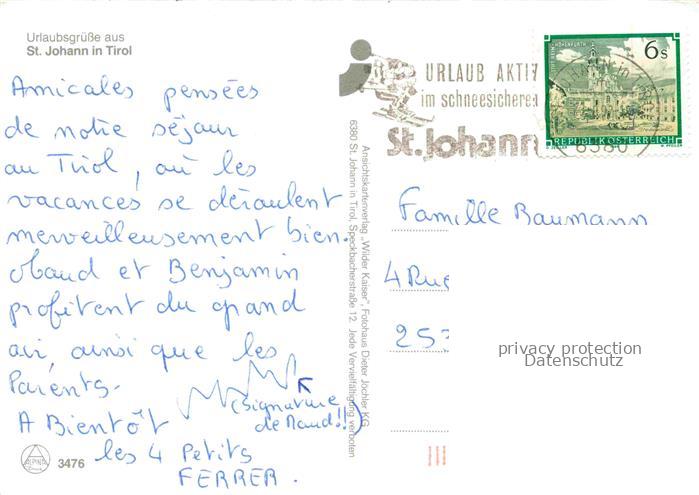 Urlaubsgrüße aus
St. Johann in Tirol
Amicales pensées
de notre séjour
au Tirol, où les
vacances se déroulent
merveilleusement bien.
Maud et Benjamin
profitent du grand
air, ainsi que les
Parents.
A Bientôt
(signature
de Maud!!)
les 4 Petits
FERRER.
ALPINA
3476
Ansichtskartenverlag „Wilder Kaiser", Fotohaus Dieter Jöchler KG
6380 St. Johann in Tirol, Speckbacherstraße 12. Jede Vervielfältigung verboten
URLAUB AKTIV
im schneesicheren
St. Johann
6380
6 s
REPUBLIK ÖSTERREICH
Famille Baumann
4 Rue
25
privacy protection
Datenschutz